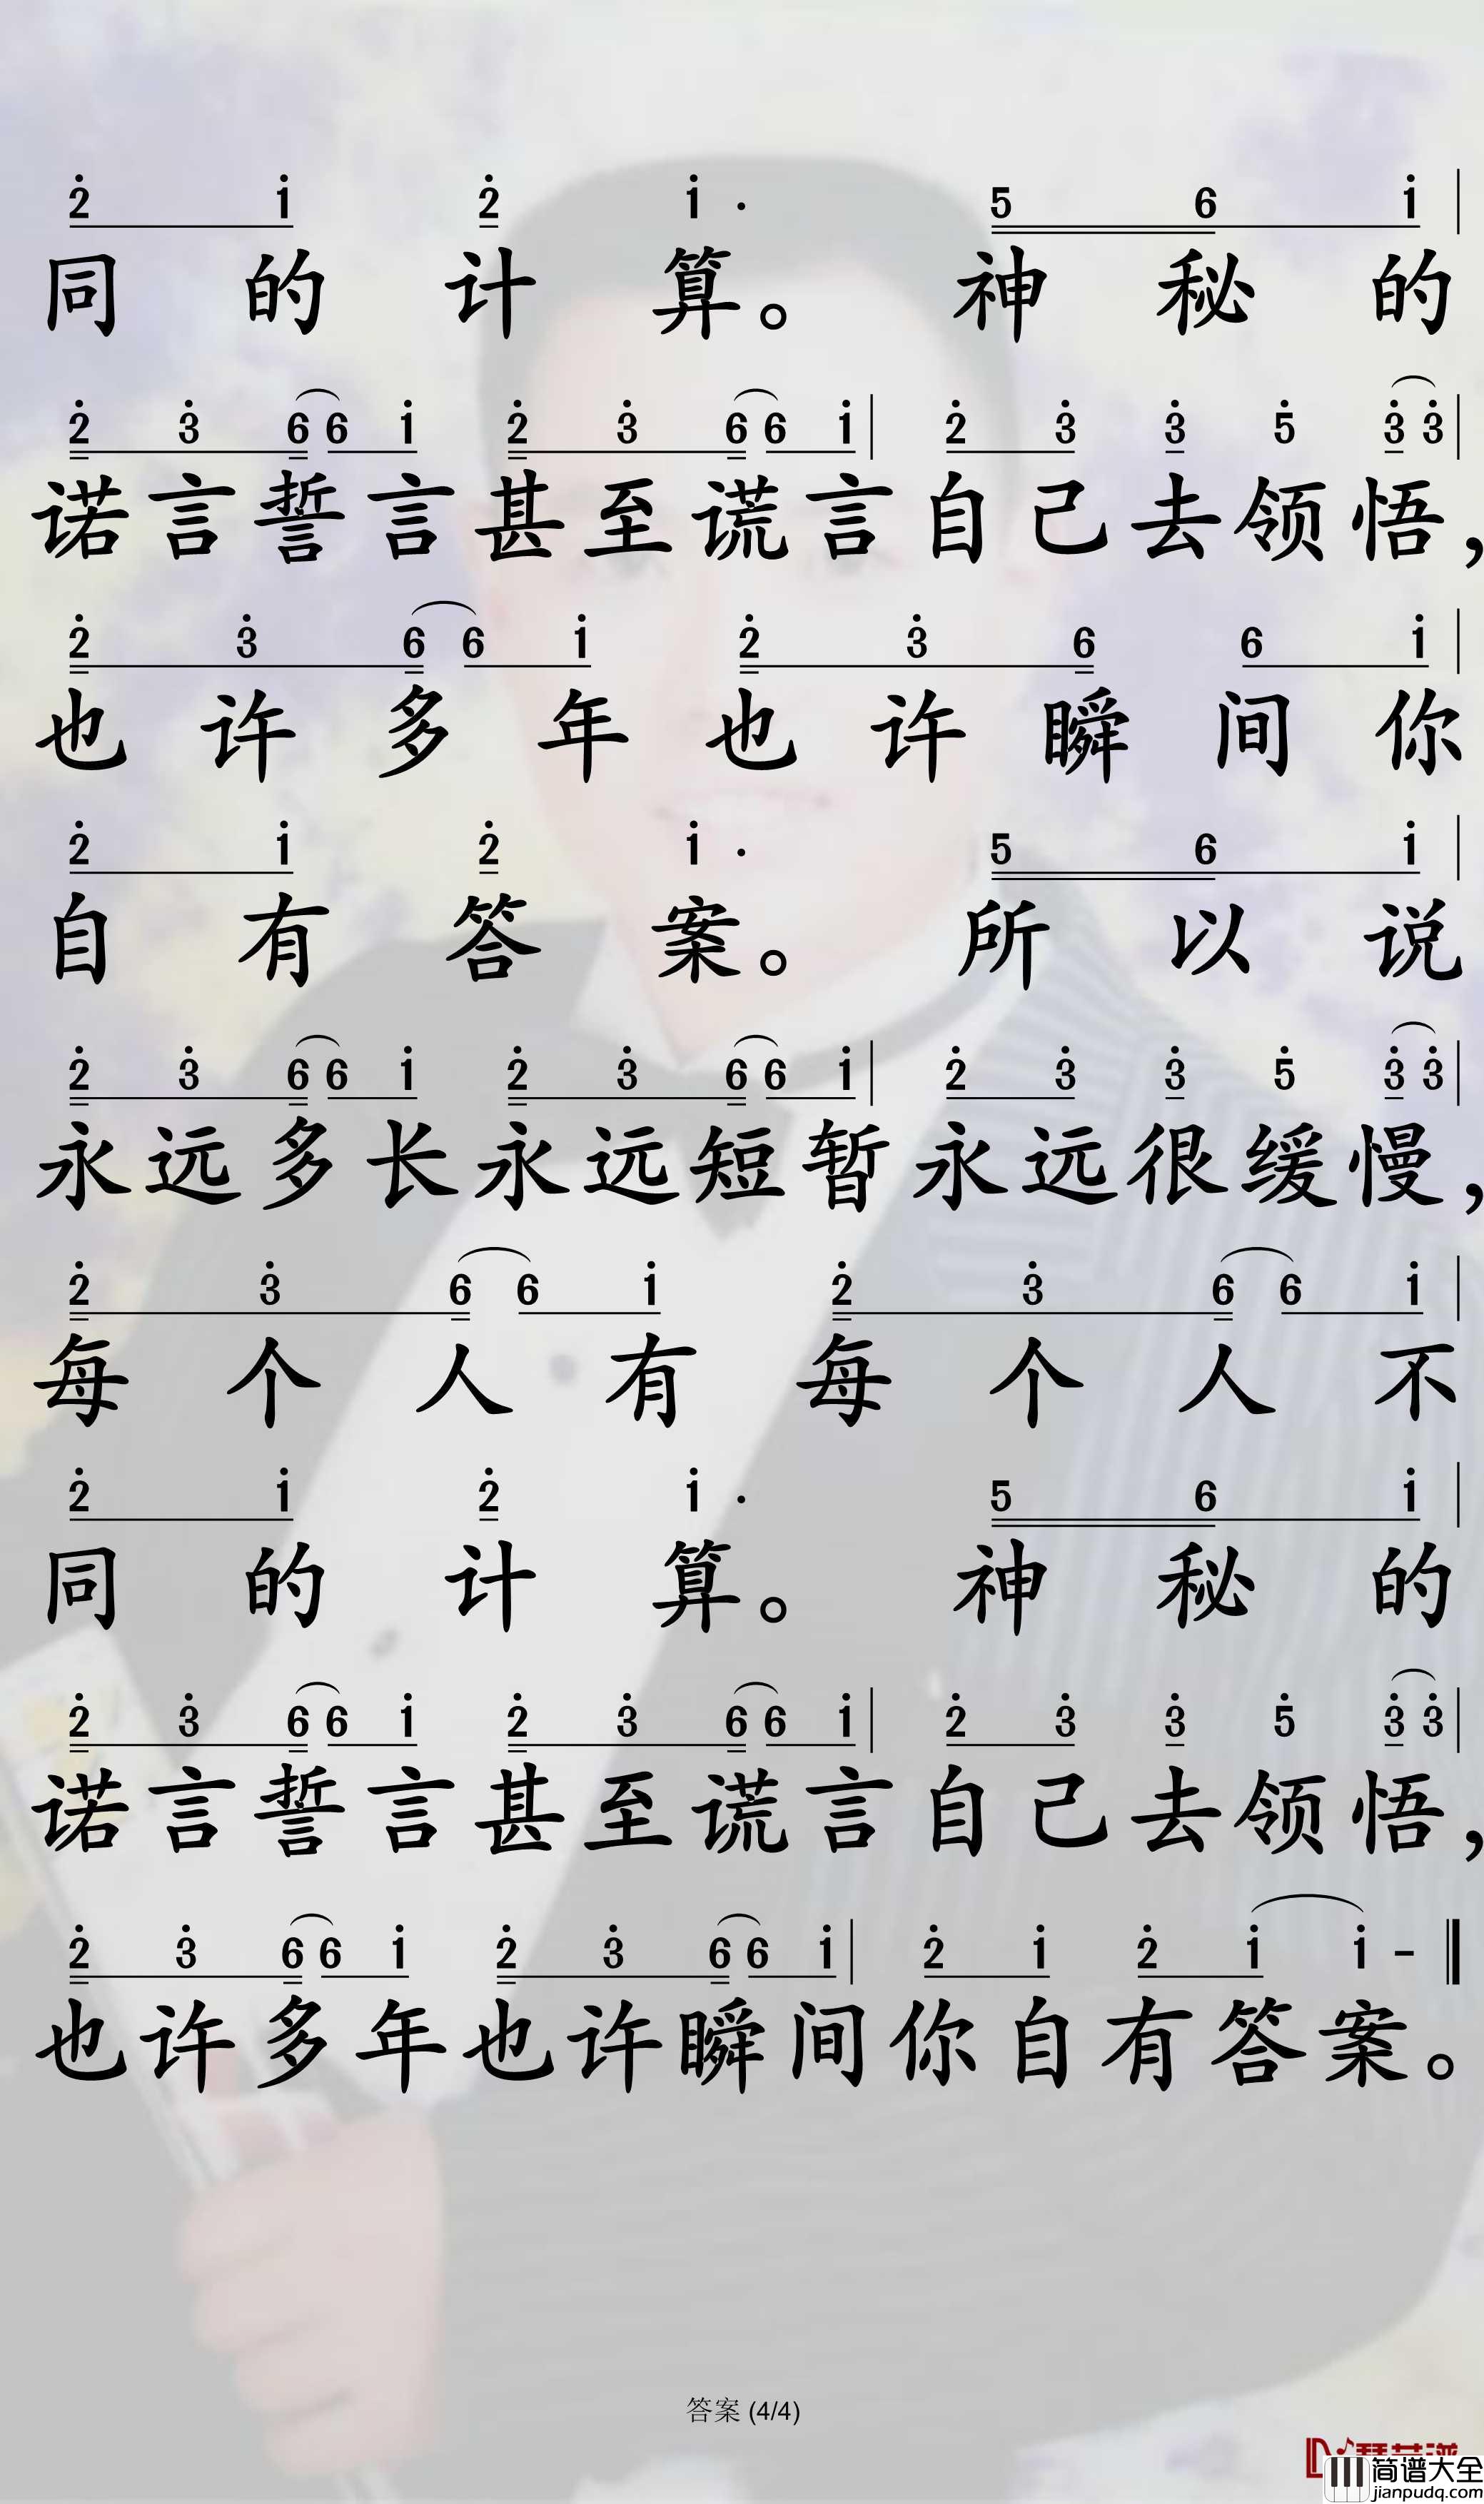 2̇ 1̇ 2̇ 1̇ · 5 6 1̇ |
同的计算。神秘的
2̇ 3̇ 6 6 1̇ 2̇ 3̇ 6 6 1̇ | 2̇ 3̇ 3̇ 5̇ 3̇ 3̇ |
诺言誓言甚至谎言自己去领悟，
2̇ 3̇ 6 6 1̇ 2̇ 3̇ 6 6 1̇ |
也许多年也许瞬间你
2̇ 1̇ 2̇ 1̇ · 5 6 1̇ |
自有答案。所以说
2̇ 3̇ 6 6 1̇ 2̇ 3̇ 6 6 1̇ | 2̇ 3̇ 3̇ 5̇ 3̇ 3̇ |
永远多长永远短暂永远很缓慢，
2̇ 3̇ 6 6 1̇ 2̇ 3̇ 6 6 1̇ |
每个人有每个人不
2̇ 1̇ 2̇ 1̇ · 5 6 1̇ |
同的计算。神秘的
2̇ 3̇ 6 6 1̇ 2̇ 3̇ 6 6 1̇ | 2̇ 3̇ 3̇ 5̇ 3̇ 3̇ |
诺言誓言甚至谎言自己去领悟，
2̇ 3̇ 6 6 1̇ 2̇ 3̇ 6 6 1̇ | 2̇ 1̇ 2̇ 1̇ 1̇ - ‖
也许多年也许瞬间你自有答案。
答案 (4/4)
简谱大全
jianpudq.com